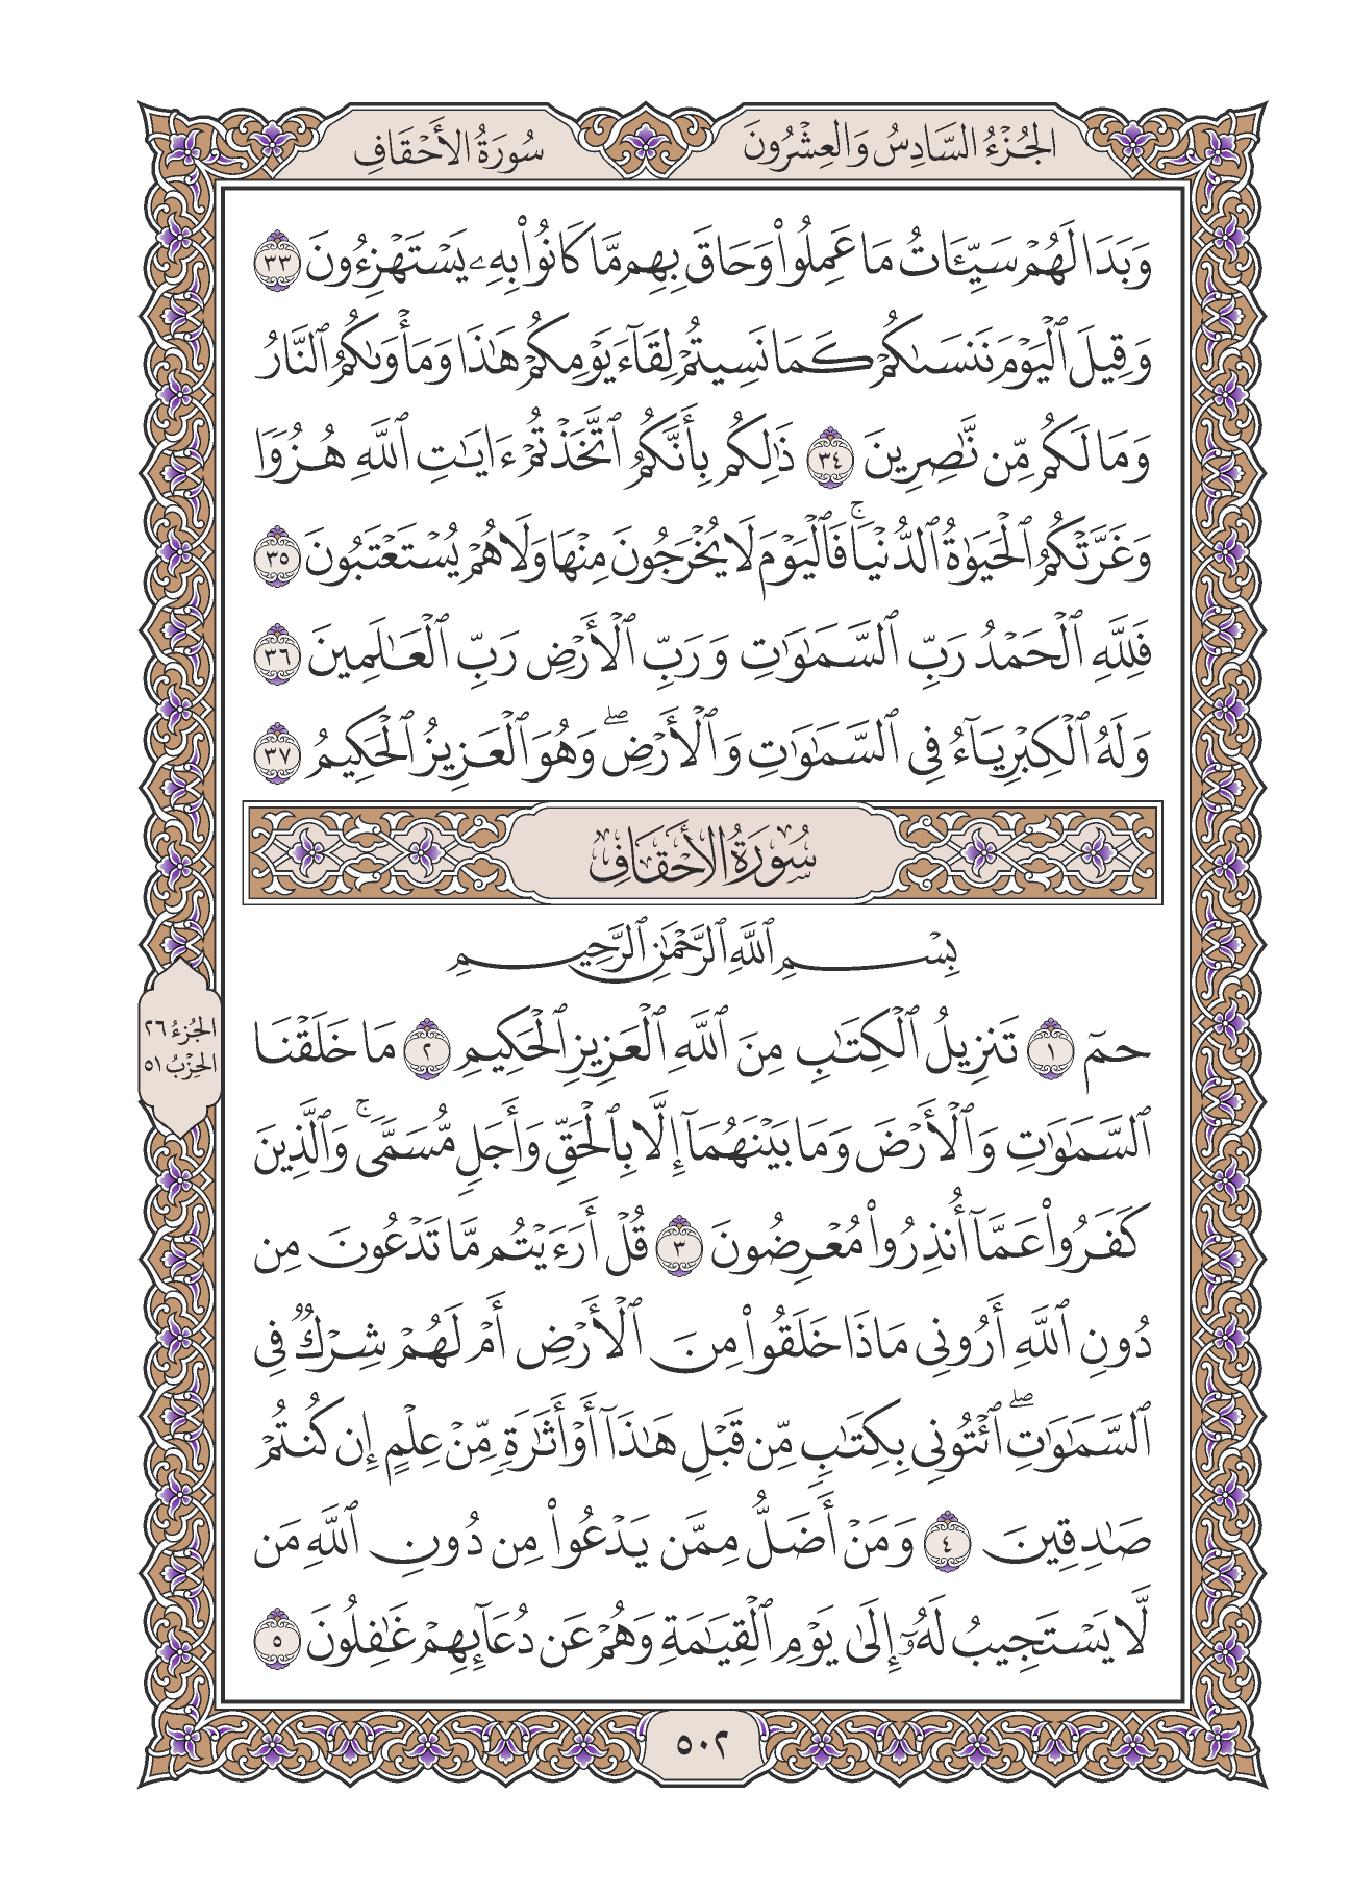 الجُزْءُ السَّادِسُ وَالعِشْرُونَ
سُورَةُ الأَحْقَافِ
وَبَدَا لَهُمْ سَيِّـَٔاتُ مَا عَمِلُوا۟ وَحَاقَ بِهِم مَّا كَانُوا۟ بِهِۦ يَسْتَهْزِءُونَ ٣٣
وَقِيلَ ٱلْيَوْمَ نَنسَىٰكُمْ كَمَا نَسِيتُمْ لِقَآءَ يَوْمِكُمْ هَٰذَا وَمَأْوَىٰكُمُ ٱلنَّارُ
وَمَا لَكُم مِّن نَّٰصِرِينَ ٣٤ ذَٰلِكُم بِأَنَّكُمُ ٱتَّخَذْتُمْ ءَايَٰتِ ٱللَّهِ هُزُوًا
وَغَرَّتْكُمُ ٱلْحَيَوٰةُ ٱلدُّنْيَا ۚ فَٱلْيَوْمَ لَا يُخْرَجُونَ مِنْهَا وَلَا هُمْ يُسْتَعْتَبُونَ ٣٥
فَلِلَّهِ ٱلْحَمْدُ رَبِّ ٱلسَّمَٰوَٰتِ وَرَبِّ ٱلْأَرْضِ رَبِّ ٱلْعَٰلَمِينَ ٣٦
وَلَهُ ٱلْكِبْرِيَآءُ فِى ٱلسَّمَٰوَٰتِ وَٱلْأَرْضِ ۖ وَهُوَ ٱلْعَزِيزُ ٱلْحَكِيمُ ٣٧
سُورَةُ الأَحْقَافِ
بِسْمِ ٱللَّهِ ٱلرَّحْمَٰنِ ٱلرَّحِيمِ
حمٓ ١ تَنزِيلُ ٱلْكِتَٰبِ مِنَ ٱللَّهِ ٱلْعَزِيزِ ٱلْحَكِيمِ ٢ مَا خَلَقْنَا
ٱلسَّمَٰوَٰتِ وَٱلْأَرْضَ وَمَا بَيْنَهُمَآ إِلَّا بِٱلْحَقِّ وَأَجَلٍ مُّسَمًّى ۚ وَٱلَّذِينَ
كَفَرُوا۟ عَمَّآ أُنذِرُوا۟ مُعْرِضُونَ ٣ قُلْ أَرَءَيْتُم مَّا تَدْعُونَ مِن
دُونِ ٱللَّهِ أَرُونِى مَاذَا خَلَقُوا۟ مِنَ ٱلْأَرْضِ أَمْ لَهُمْ شِرْكٌ فِى
ٱلسَّمَٰوَٰتِ ۖ ٱئْتُونِى بِكِتَٰبٍ مِّن قَبْلِ هَٰذَآ أَوْ أَثَٰرَةٍ مِّنْ عِلْمٍ إِن كُنتُمْ
صَٰدِقِينَ ٤ وَمَنْ أَضَلُّ مِمَّن يَدْعُوا۟ مِن دُونِ ٱللَّهِ مَن
لَّا يَسْتَجِيبُ لَهُۥٓ إِلَىٰ يَوْمِ ٱلْقِيَٰمَةِ وَهُمْ عَن دُعَآئِهِمْ غَٰفِلُونَ ٥
الجُزْءُ ٢٦
الحِزْبُ ٥١
٥٠٢